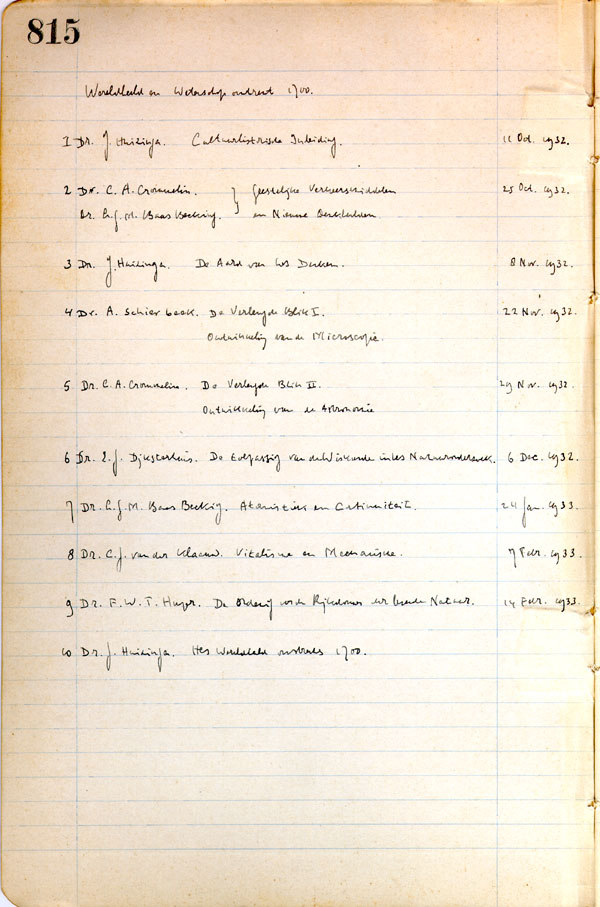 815
Wereldbeeld en Wetenschap omstreeks 1700.
1 Dr. J. Huizinga. Cultuurhistorische Inleiding. 11 Oct. 1932.
2 Dr. C. A. Crommelin. } Geestelijke Verkeersmiddelen 25 Oct. 1932.
Dr. L.G.M. Baas Becking. } en Nieuwe Denkbeelden
3 Dr. J. Huizinga. De Aard van het Denken. 8 Nov. 1932.
4 Dr. A. Schierbeek. De Verlengde Blik I. 22 Nov. 1932.
Ontwikkeling van de Microscopie.
5 Dr. C. A. Crommelin. De Verlengde Blik II. 29 Nov. 1932.
Ontwikkeling van de Astronomie
6 Dr. E. J. Dijksterhuis. De toepassing van de Wiskunde in het Natuuronderzoek. 6 Dec. 1932.
7 Dr. L.G.M. Baas Becking. Atomistiek en Continuiteit. 24 Jan. 1933.
8 Dr. C. J. van der Klaauw. Vitalisme en Mechanisme. 7 Febr. 1933.
9 Dr. F. W. T. Hunger. De Ordening van de Rijkdommen der levende Natuur. 14 Febr. 1933.
10 Dr. J. Huizinga. Het Wereldbeeld omstreeks 1700.